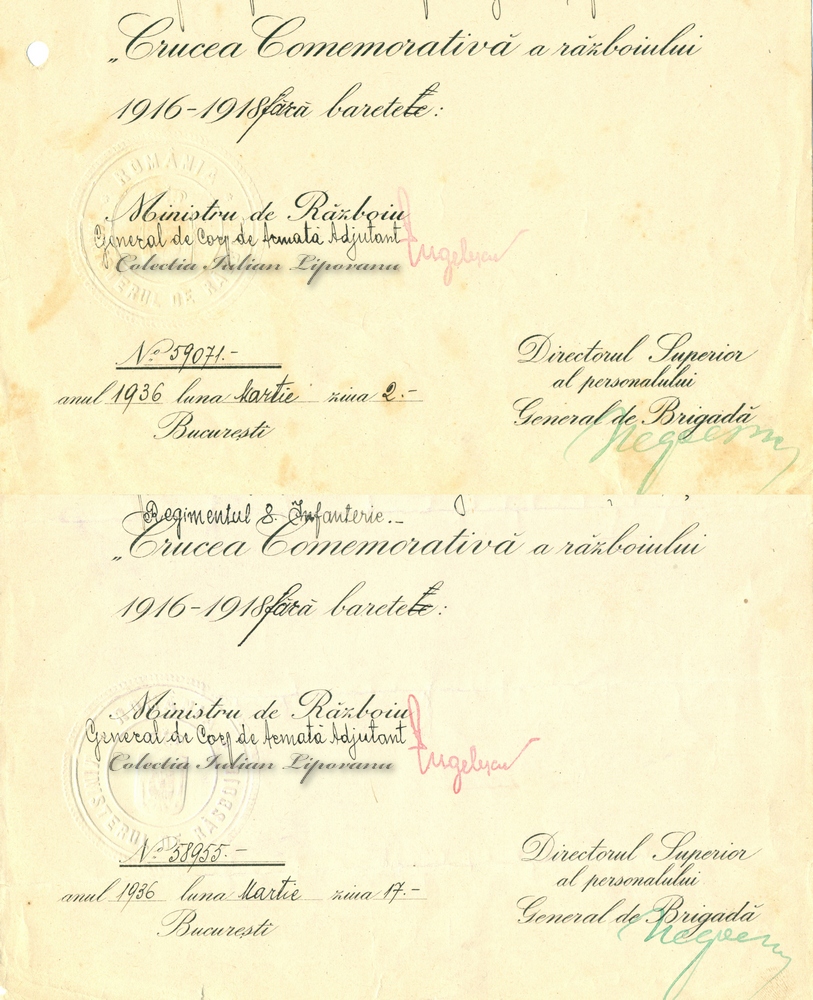 „Crucea Comemorativă a războiului
1916-1918 fără barete:
ROMÂNIA
Ministru de Războiu
General de Corp de Armată Adjutant
Angelescu
Colectia Iulian Liporanu
No 59071.-
anul 1936 luna Martie ziua 2.-
București
Directorul Superior
al personalului
General de Brigadă
Regimentul 8. Infanterie.-
„Crucea Comemorativă a războiului
1916-1918 fără barete:
Ministru de Războiu
General de Corp de Armată Adjutant
Angelescu
Colectia Iulian Liporanu
MINISTERUL DE RĂSBOIU
No 58955.-
anul 1936 luna Martie ziua 17.-
București
Directorul Superior
al personalului
General de Brigadă